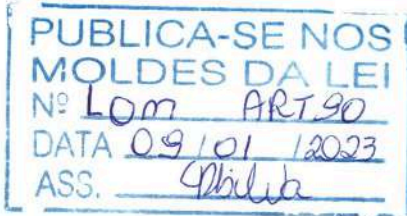 PUBLICA-SE NOS
MOLDES DA LEI
Nº LOM ART 90
DATA 09/01/2023
ASS.